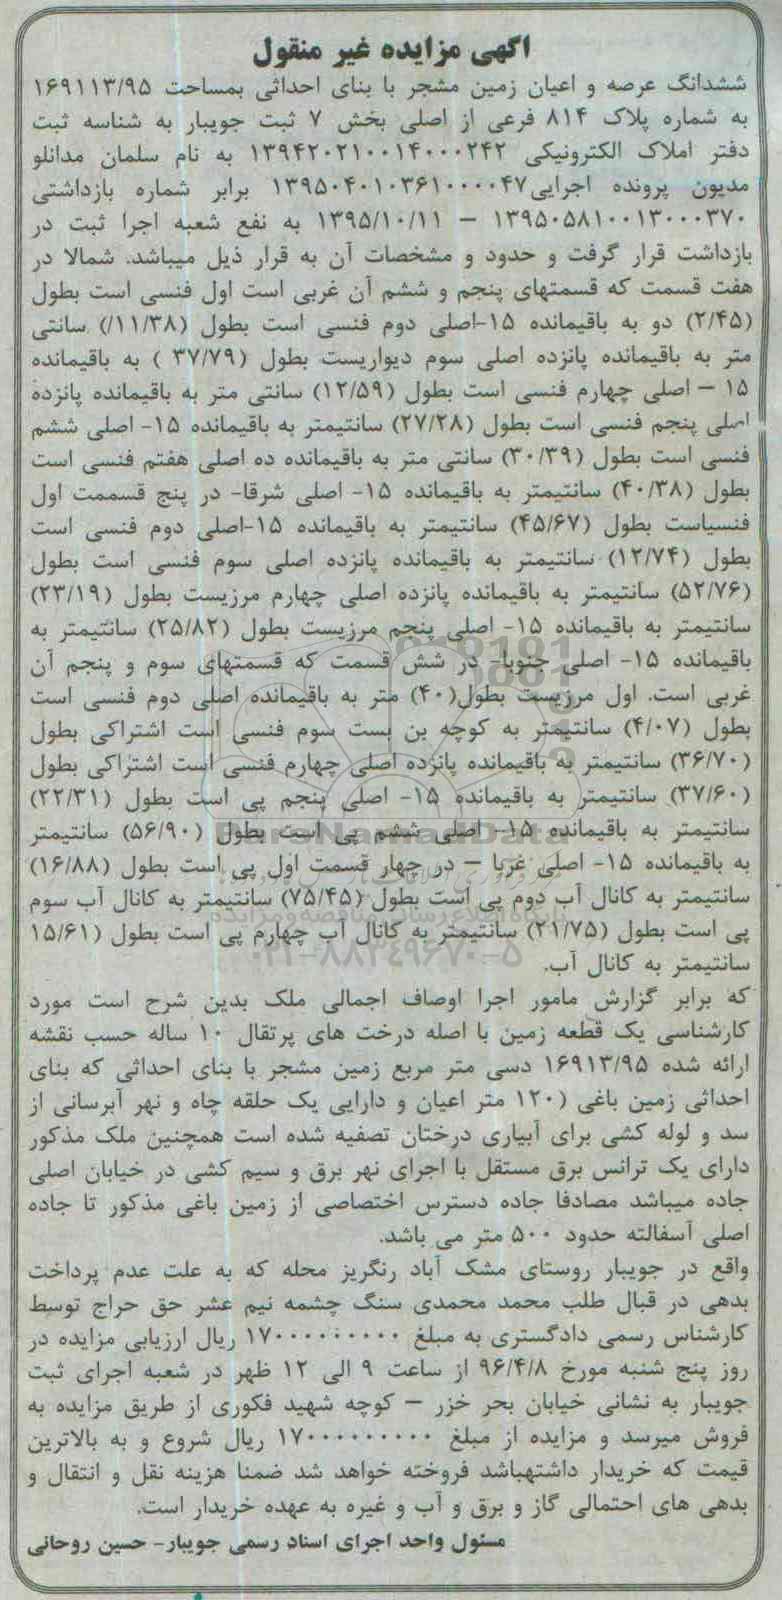 آگهی مزایده غیر منقول
ششدانگ عرصه و اعیان زمین مشجر با بنای احداثی بمساحت ۱۶۹۱۱۳/۹۵
به شماره پلاک ۸۱۴ فرعی از اصلی بخش ۷ ثبت جویبار به شناسه ثبت
دفتر املاک الکترونیکی ۱۳۹۴۲۰۲۱۰۰۱۴۰۰۰۲۴۲ به نام سلمان مدانلو
مدیون پرونده اجرایی۱۳۹۵۰۴۰۱۰۳۶۱۰۰۰۰۴۷ برابر شماره بازداشتی
۱۳۹۵۰۵۸۱۰۰۱۳۰۰۰۳۷۰ – ۱۳۹۵/۱۰/۱۱ به نفع شعبه اجرا ثبت در
بازداشت قرار گرفت و حدود و مشخصات آن به قرار ذیل میباشد. شمالا در
هفت قسمت که قسمتهای پنجم و ششم آن غربی است اول فنسی است بطول
(۲/۴۵) دو به باقیمانده ۱۵-اصلی دوم فنسی است بطول (۱۱/۳۸/) سانتی
متر به باقیمانده پانزده اصلی سوم دیواریست بطول (۳۷/۷۹ ) به باقیمانده
۱۵ – اصلی چهارم فنسی است بطول (۱۲/۵۹) سانتی متر به باقیمانده پانزده
اصلی پنجم فنسی است بطول (۲۷/۲۸) سانتیمتر به باقیمانده ۱۵- اصلی ششم
فنسی است بطول (۳۰/۳۹) سانتی متر به باقیمانده ده اصلی هفتم فنسی است
بطول (۴۰/۳۸) سانتیمتر به باقیمانده ۱۵- اصلی شرقا- در پنج قسممت اول
فنسیاست بطول (۴۵/۶۷) سانتیمتر به باقیمانده ۱۵-اصلی دوم فنسی است
بطول (۱۲/۷۴) سانتیمتر به باقیمانده پانزده اصلی سوم فنسی است بطول
(۵۲/۷۶) سانتیمتر به باقیمانده پانزده اصلی چهارم مرزیست بطول (۲۳/۱۹)
سانتیمتر به باقیمانده ۱۵- اصلی پنجم مرزیست بطول (۲۵/۸۲) سانتیمتر به
باقیمانده ۱۵- اصلی جنوبا- در شش قسمت که قسمتهای سوم و پنجم آن
غربی است. اول مرزیست بطول(۴۰) متر به باقیمانده اصلی دوم فنسی است
بطول (۴/۰۷) سانتیمتر به کوچه بن بست سوم فنسی است اشتراکی بطول
(۳۶/۷۰) سانتیمتر به باقیمانده پانزده اصلی چهارم فنسی است اشتراکی بطول
(۳۷/۶۰) سانتیمتر به باقیمانده ۱۵- اصلی پنجم پی است بطول (۲۲/۳۱)
سانتیمتر به باقیمانده ۱۵- اصلی ششم پی است بطول (۵۶/۹۰) سانتیمتر
به باقیمانده ۱۵- اصلی غربا – در چهار قسمت اول پی است بطول (۱۶/۸۸)
سانتیمتر به کانال آب دوم پی است بطول (۷۵/۴۵) سانتیمتر به کانال آب سوم
پی است بطول (۲۱/۷۵) سانتیمتر به کانال آب چهارم پی است بطول (۱۵/۶۱
سانتیمتر به کانال آب.
که برابر گزارش مامور اجرا اوصاف اجمالی ملک بدین شرح است مورد
کارشناسی یک قطعه زمین با اصله درخت های پرتقال ۱۰ ساله حسب نقشه
ارائه شده ۱۶۹۱۳/۹۵ دسی متر مربع زمین مشجر با بنای احداثی که بنای
احداثی زمین باغی (۱۲۰ متر اعیان و دارایی یک حلقه چاه و نهر آبرسانی از
سد و لوله کشی برای آبیاری درختان تصفیه شده است همچنین ملک مذکور
دارای یک ترانس برق مستقل با اجرای نهر برق و سیم کشی در خیابان اصلی
جاده میباشد مصادفا جاده دسترس اختصاصی از زمین باغی مذکور تا جاده
اصلی آسفالته حدود ۵۰۰ متر می باشد.
واقع در جویبار روستای مشک آباد رنگریز محله که به علت عدم پرداخت
بدهی در قبال طلب محمد محمدی سنگ چشمه نیم عشر حق حراج توسط
کارشناس رسمی دادگستری به مبلغ ۱۷۰۰۰۰۰۰۰۰۰ ریال ارزیابی مزایده در
روز پنج شنبه مورخ ۹۶/۴/۸ از ساعت ۹ الی ۱۲ ظهر در شعبه اجرای ثبت
جویبار به نشانی خیابان بحر خزر – کوچه شهید فکوری از طریق مزایده به
فروش میرسد و مزایده از مبلغ ۱۷۰۰۰۰۰۰۰۰۰ ریال شروع و به بالاترین
قیمت که خریدار داشتهباشد فروخته خواهد شد ضمنا هزینه نقل و انتقال و
بدهی های احتمالی گاز و برق و آب و غیره به عهده خریدار است.
مسئول واحد اجرای اسناد رسمی جویبار- حسین روحانی
ParsNamadData
پایگاه اطلاع رسانی مناقصه و مزایده
۰۲۱-۸۸۳۴۹۶۷۰-۵